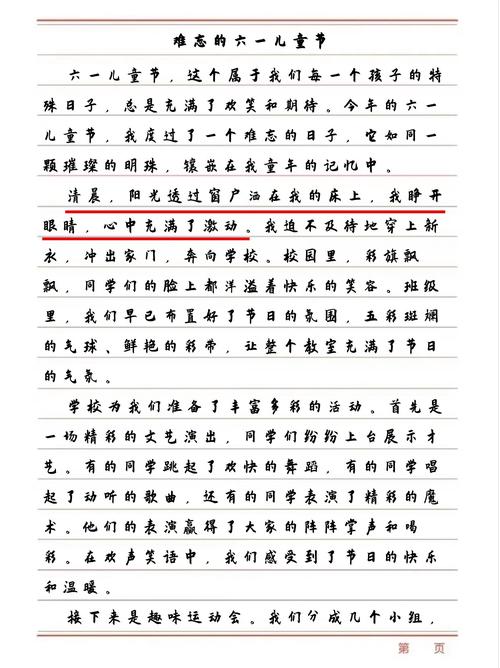 难忘的六一儿童节
六一儿童节，这个属于我们每一个孩子的特
殊日子，总是充满了欢笑和期待。今年的六一
儿童节，我度过了一个难忘的日子，它如同一
颗璀璨的明珠，镶嵌在我童年的记忆中。
清晨，阳光透过窗户洒在我的床上，我睁开
眼睛，心中充满了激动。我迫不及待地穿上新
衣，冲出家门，奔向学校。校园里，彩旗飘
飘，同学们的脸上都洋溢着快乐的笑容。班级
里，我们早已布置好了节日的氛围，五彩斑斓
的气球、鲜艳的彩带，让整个教室充满了节日
的气氛。
学校为我们准备了丰富多彩的活动。首先是
一场精彩的文艺演出，同学们纷纷上台展示才
艺。有的同学跳起了欢快的舞蹈，有的同学唱
起了动听的歌曲，还有的同学表演了精彩的魔
术。他们的表演赢得了大家的阵阵掌声和喝
彩。在欢声笑语中，我们感受到了节日的快乐
和温暖。
接下来是趣味运动会。我们分成几个小组，
第 页